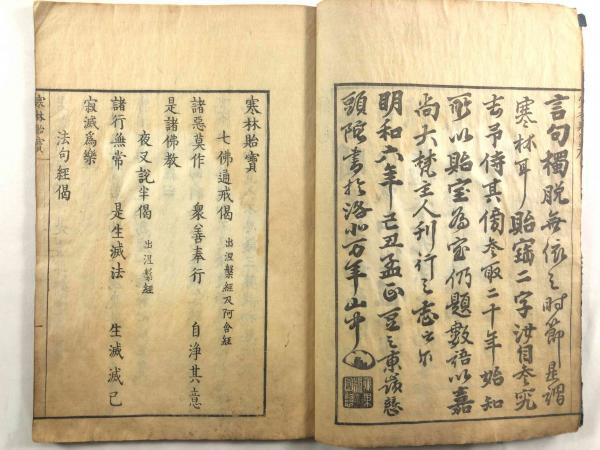 言句獨脱無依之時節是謂
寒林耳貽寶二字汝自参究
去予侍其傍参取二十年始知
所以貽宝為宝仍題數語以嘉
尚大梵主人刊行之志云尓
明和六年己丑孟正豆之東嶺慈
頭陀書於洛北万年山中
寒林貽寶
七佛通戒偈 出涅槃經及阿含經
諸惡莫作 衆善奉行 自浄其意
是諸佛教
夜叉說半偈 出涅槃經
諸行無常 是生滅法 生滅滅已
寂滅爲樂
法句經偈
寒林貽寶
一